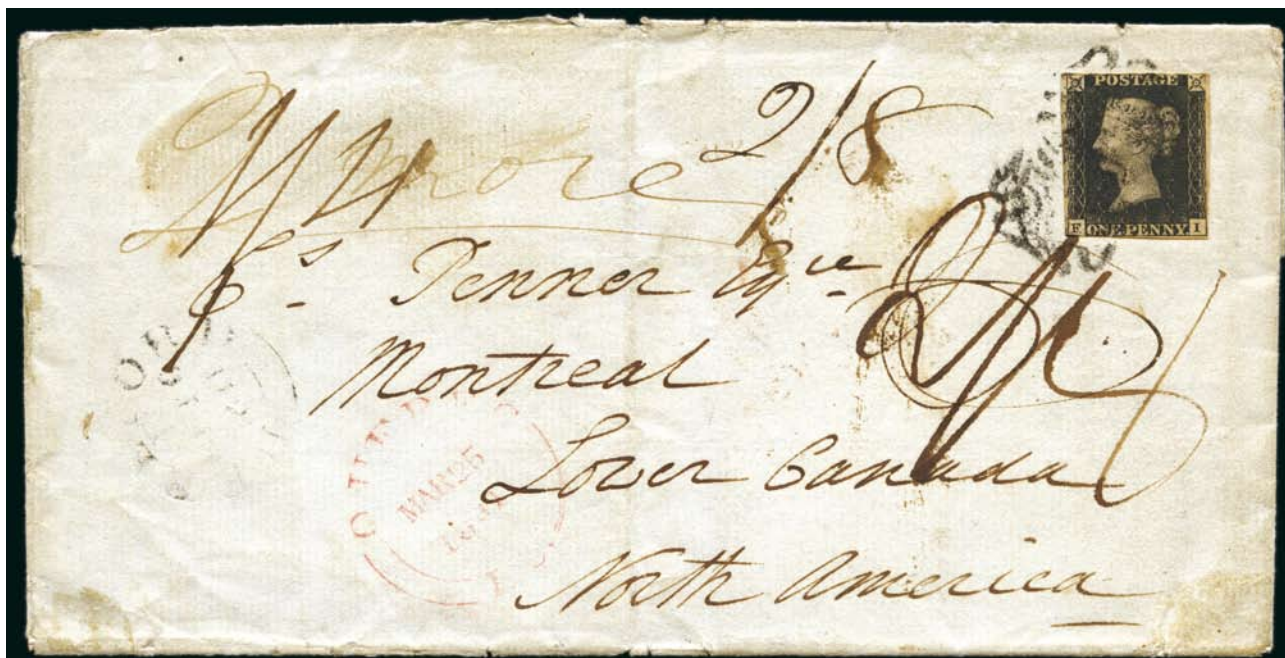 POSTAGE
F I
ONE PENNY
more 2/8
Js Jenner Esqre
Montreal
Lower Canada
North America
MAR 25